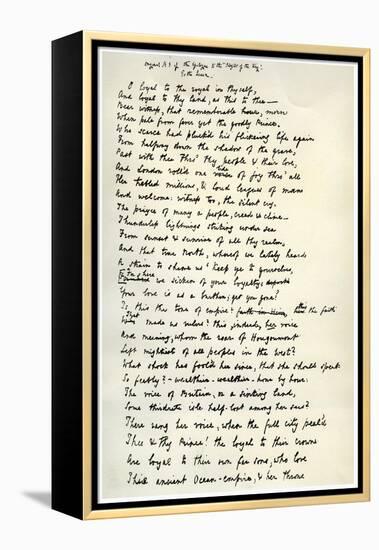 Original M S of the Epilogue to the "Idylls of the King".
To the Queen.
O loyal to the royal in thyself,
And loyal to thy land, as this to thee—
Bear witness, that rememberable hour, morn
When pale from fever yet the goodly Prince,
Who scarce had pluck'd his flickering life again
From halfway down the shadow of the grave,
Past with thee thro' thy people & their love,
And London roll'd one tide of joy thro' all
Her trebled millions, & loud leagues of man
And welcome: witness too, the silent cry,
The prayer of many a people, creed & clime—
Thunderless lightnings striking under sea
From sunset & sunrise of all thy realm,
And that true North, whereof we lately heard
A strain to shame us 'keep ye to yourselves,
So we sicken of your loyalty;
Your love is as a burthen; get you gone!'
Is this the tone of empire? the faith
That made us rulers? This, indeed, her voice
And meaning, whom the roar of Hougoumont
Left mightiest of all peoples in the west?
What shock has fool'd her since, that she should speak
So feebly? — wealthier — wealthier — hour by hour:
The voice of Britain, or a sinking land,
Some third-rate isle half-lost among her seas?
There rang her voice, when the full city peal'd
Thee & thy Prince! the loyal to their crown
Are loyal to their own far sons, who love
This ancient Ocean-empire, & her Throne